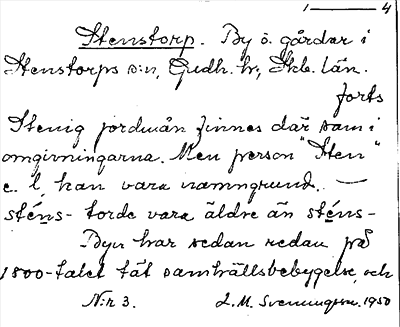 1 — 4
Stenstorp. By o. gårdar i
Stenstorps s:n, Gudh. hr, Skb. län.
forts
Stenig jordmån finnes där som i
omgivningarna. Men person "Sten"
e. l. kan vara namngrund. —
sténs- torde vara äldre än sténs-
Byn har sedan redan på
1800-talet tät samhällsbebyggelse, och
N:r 3. L. M. Svenungsson. 1950